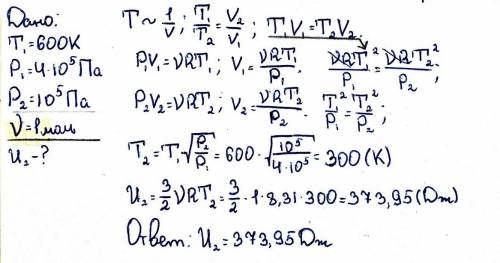 Дано:
T₁=600K
P₁=4·10⁵Па
P₂=10⁵Па
ν=1моль
U₂-?
T~1/V; T₁/T₂=V₂/V₁; T₁V₁=T₂V₂.
P₁V₁=νRT₁; V₁=νRT₁/P₁. νRT₁²/P₁=νRT₂²/P₂;
P₂V₂=νRT₂; V₂=νRT₂/P₂. T₁²/P₁=T₂²/P₂;
T₂=T₁√(P₂/P₁)=600·√(10⁵/4·10⁵)=300(K)
U₂=3/2νRT₂=3/2·1·8,31·300=373,95(Дж)
Ответ: U₂=373,95Дж